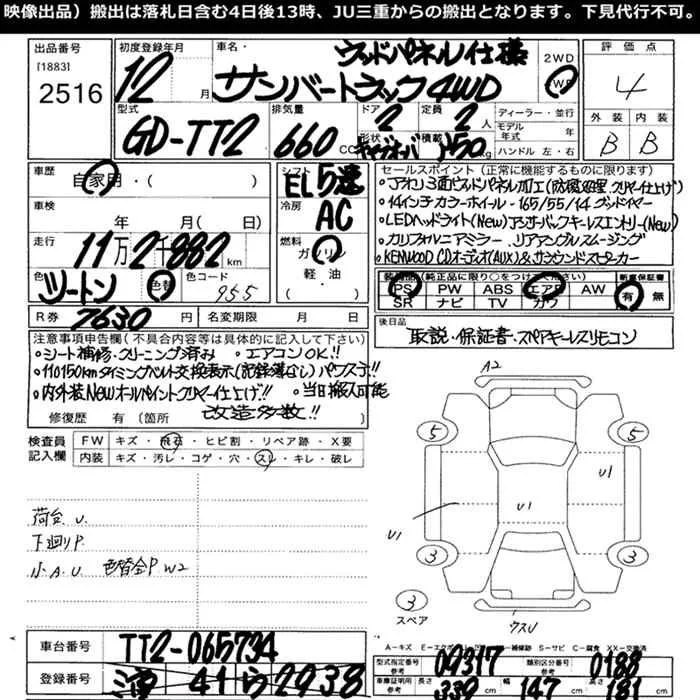 映像出品）搬出は落札日含む4日後13時、JU三重からの搬出となります。下見代行不可。
出品番号
[1883]
2516
初度登録年月
12 月
車名・
ウッドパネル仕様
サンバートラック4WD
2WD
WD
評価点
4
外装 内装
B B
型式
GD-TT2
排気量
660 CC
ドア
2
定員
2 人
形状
キャブオーバ
積載
350 kg
ディーラー・並行
モデル
年式 年
ハンドル 左・右
車歴
自家用・( )
車検
年 月( )
走行
11万2千882 km
色
ツートン
色替
色コード
955
R券
7630 円
名変期限 月 日
シフト
EL5速
冷房
AC
燃料
ガソリン
軽・油
( )
セールスポイント（正常に機能するものに限ります）
・アオリ3面ウッドパネル加工(防腐処理.クリヤー仕上げ)
・14インチカラーホイール・165/55/14グッドイヤー
・LEDヘッドライト(New)アンサーバックキーレスエントリー(New)
・カリフォルニアミラー.リアアングルスムージング
・KENWOOD CDオーディオ(AUX)&サラウンドスピーカー
装備品(純正品に限り○をつけてください)
新車保証書
PS PW ABS エアB AW
SR ナビ TV カワ
有 無
後日品
取説・保証書・スペアキーレスリモコン
注意事項申告欄(不具合内容等は具体的に記入して下さい)
・シート補修.クリーニング済み ・エアコンOK!!
・110150kmタイミングベルト交換表示(記録簿なし)パワステ!!
・内外装Newオールペイントクリヤー仕上げ!! ・当日搬入可能
改造多数!!
修復歴 有(箇所
検査員
記入欄
FW キズ・飛石・ヒビ割・リペア跡・X要
内装 キズ・汚レ・コゲ・穴・スレ・キレ・破レ
荷台 U.
下廻りP.
小A.U 色替全P W2
A2
5
5
U1
U1
U1
3
3
3
スペア
ウスU
車台番号
TT2-065734
登録番号
三重 41 ら 2938
A－キズ E－エクボ 補修跡 S－サビ C－腐食 XX－交換済
型式指定番号
参考
09317
類別区分番号
参考
0188
車庫証明用
参考
長さ
339 cm
幅
147 cm
高さ
181 cm